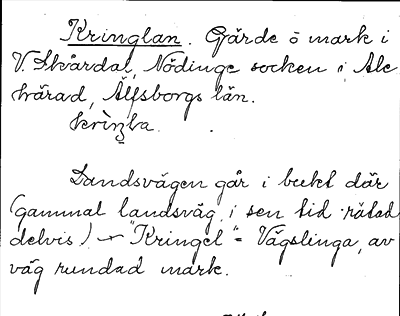 Kringlan. Gärde o mark i
V. Skårdal, Nödinge socken i Ale
härad, Älfsborgs län.
Landsvägen går i bukt där
(gammal landsväg, i sen tid rätad
delvis) "Kringel" = Vägslinga, av
väg rundad mark.